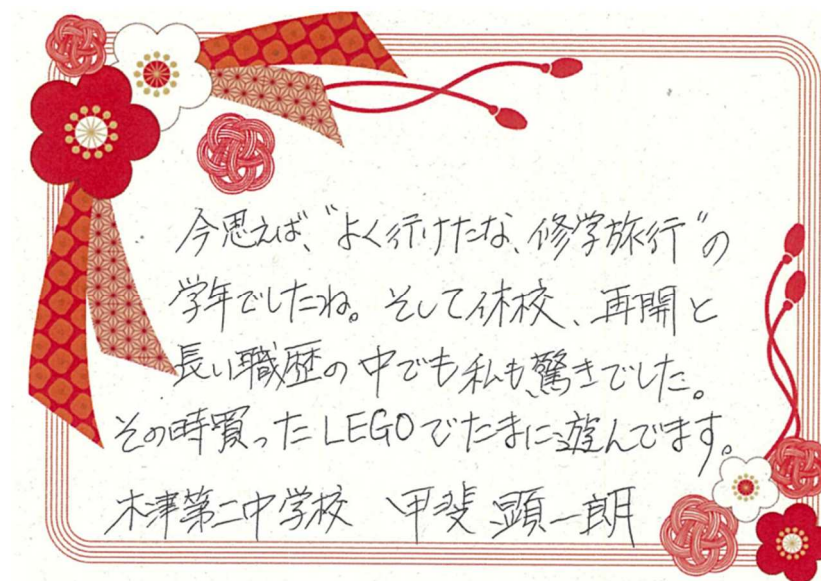 今思えば、“よく行けたな、修学旅行”の
学年でしたね。そして休校、再開と
長い職歴の中でも私も驚きでした。
その時買ったLEGOでたまに遊んでます。
木津第二中学校 甲斐 顕一朗